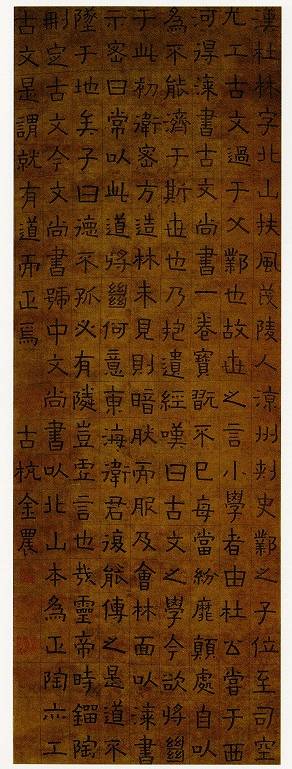 漢杜林字北山扶風茂陵人涼州刺史鄴之子位至司空
尤工古文過于父鄴也故世之言小學者由杜公嘗于西
河得漆書古文尚書一卷寶翫不已每當紛靡顛處自以
為不能濟于斯世也乃抱遺經嘆曰古文之學今欲將𢇍
于此初衛密方造林未見則暗肰而服及會林面以漆書
示密曰常以此道將𢇍何意東海衛君復能傳之是道不
墜于地矣子曰德不孤必有隣豈虛言也哉靈帝時鎦陶
刪定古文今文尚書號中文尚書以北山本為正陶亦工
古文是謂就有道而正焉　古杭金農